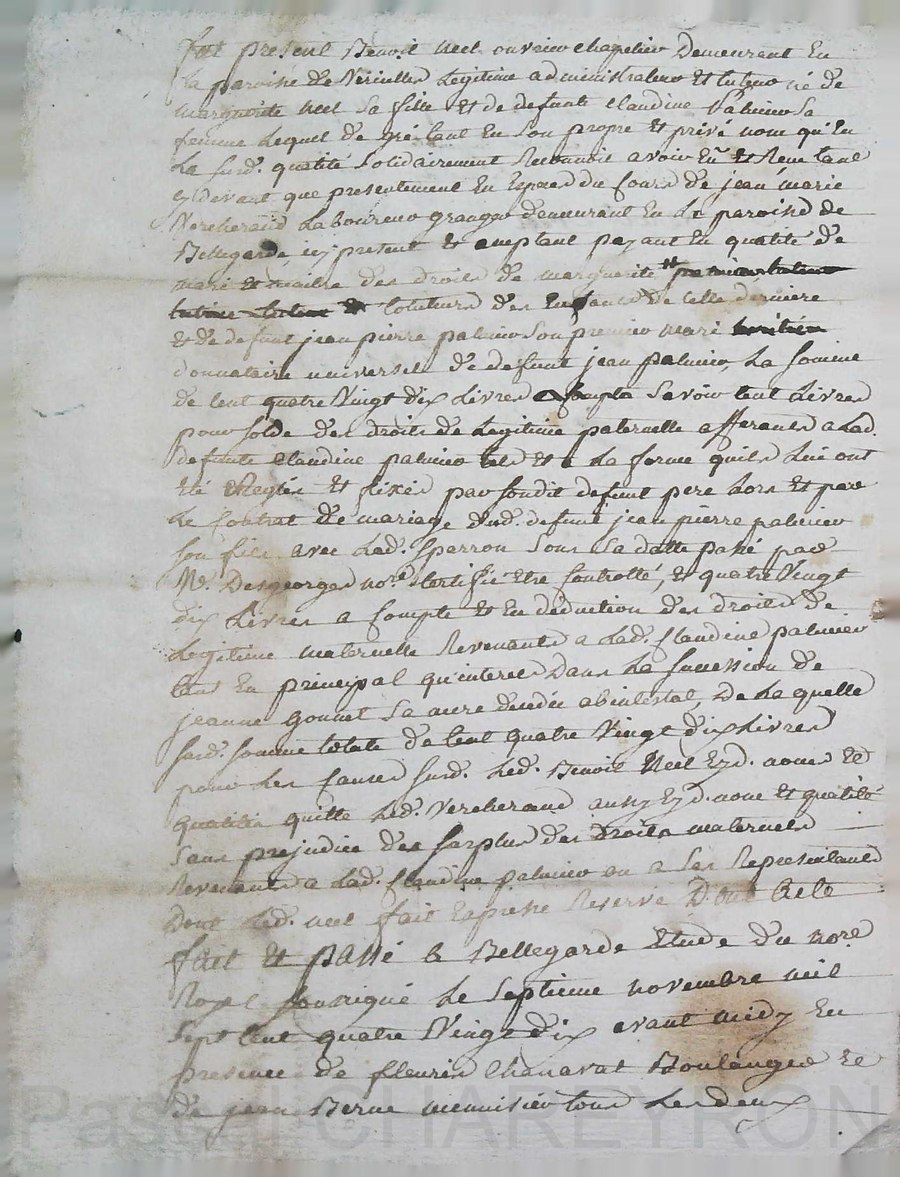 fut present Benoit neel ouvrier chapelier Demeurant En
la paroisse de Virieulles Legitime administrateur et tuteur né de
marguerite neel sa fille et de defunte Claudine palmier sa
femme Lequel de gré tant En son propre et privé nom qu'En
La surd. qualité solidairement Reconnoit avoir Eu et Receu tant
cy devant que presentement En Especes du Cours de jean marie
Vercherand Laboureur granger demeurant En La paroisse de
Bellegarde icy present et acceptant payant En qualité de
mari et maitre des droits de marguerite
tuteurs des Enfants de Celle derniere
et de defunt jean pierre palmier son premier mari
donnataire universel de defunt jean palmier, La somme
de Cent quatre Vingt dix Livres a Compte savoir Cent Livres
pour solde des droits de Legitime paternelle afferants a Lad.
defunte Claudine palmier tels et a La forme quils Lui ont
Eté Reglés et fixés par sondit defunt pere Lors et par
Le Contrat de mariage dud. defunt jean pierre palmier
son fils avec Lad. sperron sous sa datte passé par
Me. Desgeorges nore. Certifié Etre Controllé, et quatre Vingt
dix Livres a Compte et En déduction des droits de
Legitime maternelle Revenants a Lad. Claudine palmier
tant En principal qu'interets Dans La succession de
jeanne gonnet sa mere decedée abintestat, De La quelle
surd. somme totale de Cent quatre Vingt dix Livres
pour Les Causes surd. Led. Benoit Neel Ezd. noms et
qualités quitte Led. Vercherand aussy Ezd. nom et qualité
sans prejudice des surplus des Droits maternels
Revenants a Lad. Claudine palmier ou a ses Representants
Dont Led. neel fait Expresse Reserve Dont acte
fait et passé a Bellegarde Etude du nore
Royal soussigné Le septieme novembre mil
sept Cent quatre Vingt dix avant midy En
presence de fleurin Chanavat Boulanger et
de jean Berne menuisier tous Les deux
Pascal CHAREYRON